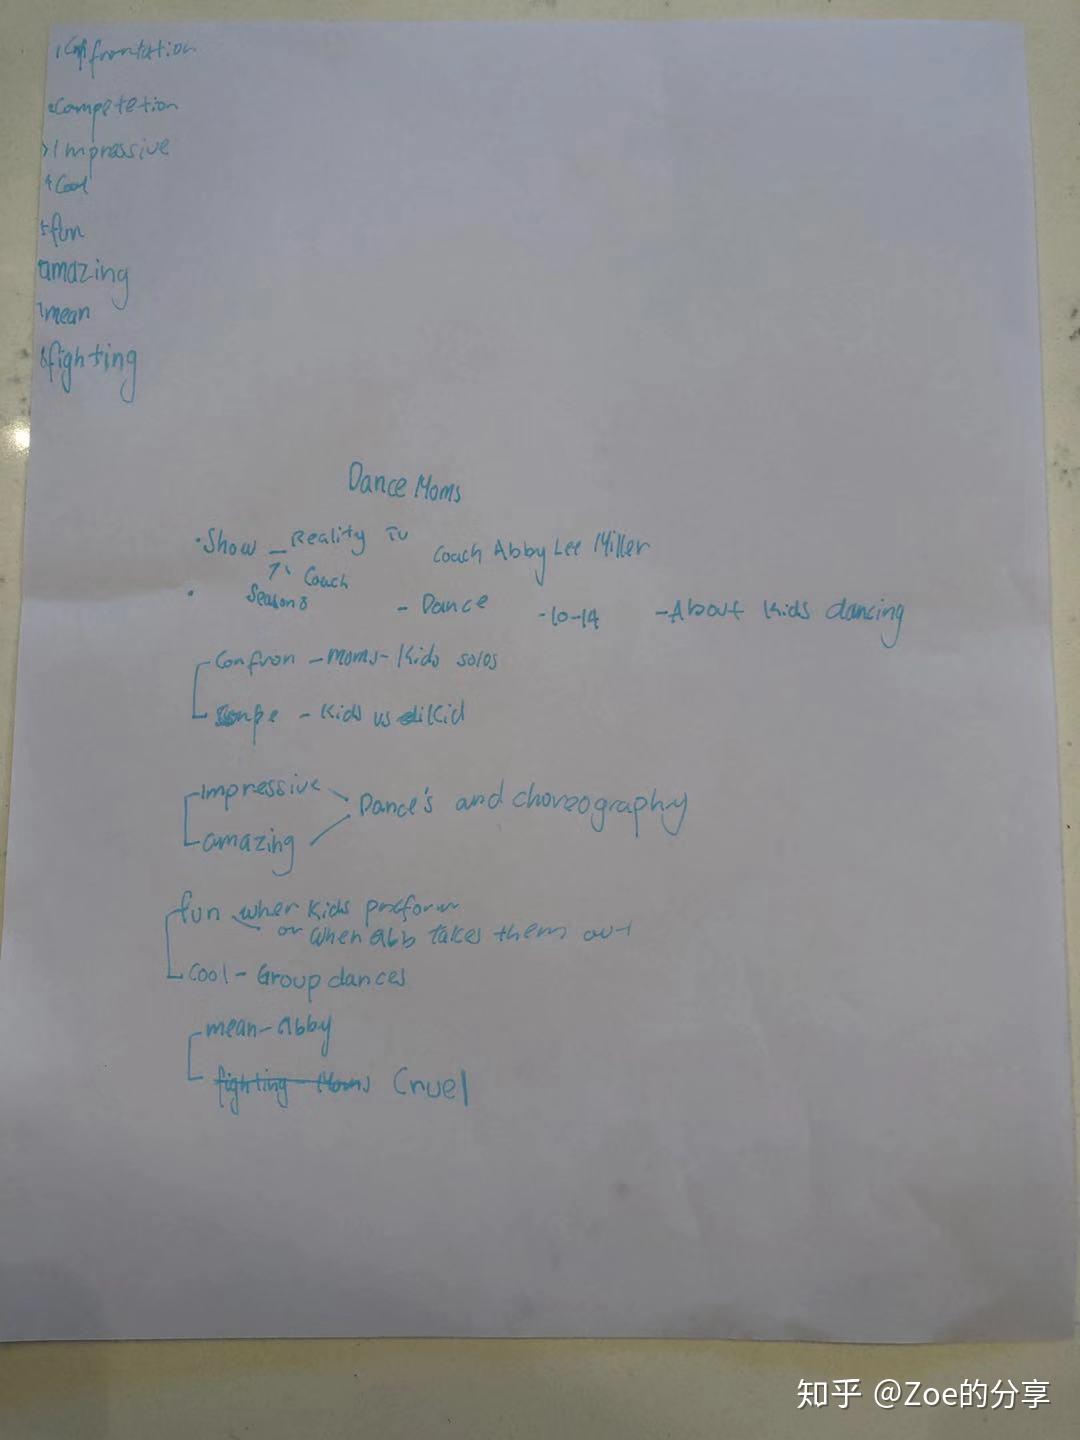 1 Confrontation
2 Competetion
3 Impressive
4 Cool
5 fun
6 amazing
7 mean
8 fighting
Dance Moms
• Show – Reality TV Coach Abby Lee Miller
Coach
Season 8
- Dance - 10-14 - About kids dancing
Confron – moms – Kids solos
Compe – Kids vs Kid
Impressive
Dance's and choreography
amazing
fun when kids preform
or when abb takes them out
Cool – Group dances
mean – abby
fighting – Moms Cruel
知乎 @Zoe的分享